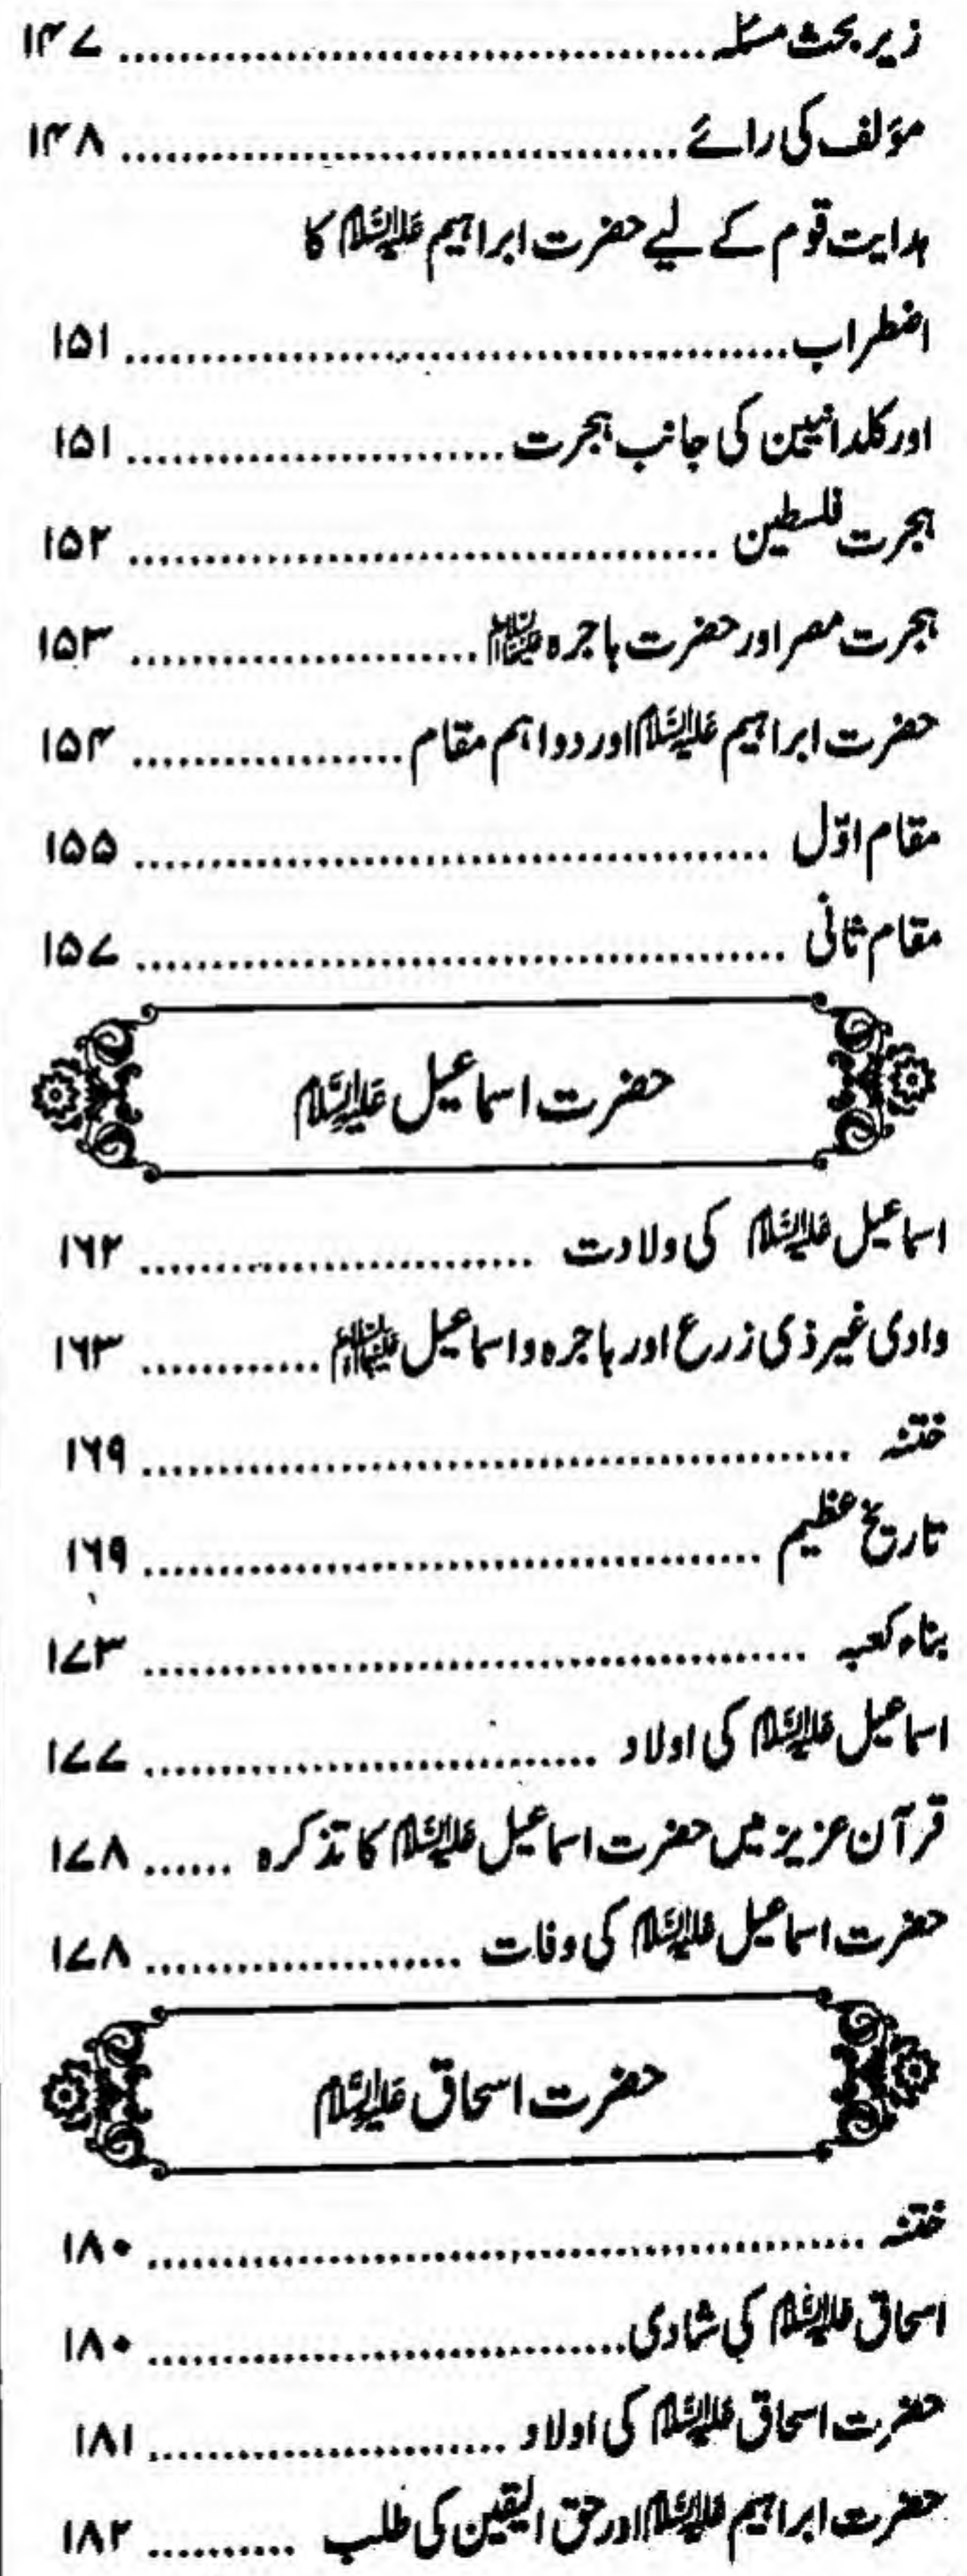 زیر بحث مسئلہ ........ ۱۴۷
مؤلف کی رائے ........ ۱۴۸
ہدایت قوم کے لیے حضرت ابراہیم علیہ السلام کا
اضطراب ........ ۱۵۱
اور کلدانیین کی جانب ہجرت ........ ۱۵۱
ہجرت فلسطین ........ ۱۵۲
ہجرت مصر اور حضرت ہاجرہ علیہا السلام ........ ۱۵۳
حضرت ابراہیم علیہ السلام اور دو اہم مقام ........ ۱۵۴
مقام اوّل ........ ۱۵۵
مقام ثانی ........ ۱۵۷
حضرت اسماعیل علیہ السلام
اسماعیل علیہ السلام کی ولادت ........ ۱۶۲
وادی غیر ذی زرع اور ہاجرہ و اسماعیل علیہما السلام ........ ۱۶۳
ختنہ ........ ۱۶۹
تاریخ عظیم ........ ۱۶۹
بناء کعبہ ........ ۱۷۳
اسماعیل علیہ السلام کی اولاد ........ ۱۷۷
قرآن عزیز میں حضرت اسماعیل علیہ السلام کا تذکرہ ...... ۱۷۸
حضرت اسماعیل علیہ السلام کی وفات ........ ۱۷۸
حضرت اسحاق علیہ السلام
ختنہ ........ ۱۸۰
اسحاق علیہ السلام کی شادی ........ ۱۸۰
حضرت اسحاق علیہ السلام کی اولاد ........ ۱۸۱
حضرت ابراہیم علیہ السلام اور حق الیقین کی طلب ........ ۱۸۲